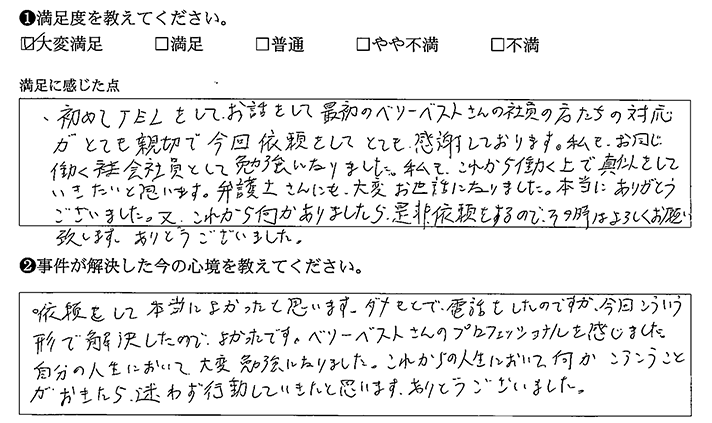 ❶満足度を教えてください。
☑大変満足 □満足 □普通 □やや不満 □不満
満足に感じた点
、初めてTELをして、お話をして最初のベリーベストさんの社員の方たちの対応
がとても親切で今回依頼をしてとても感謝しております。私も、お同じ
働く社会社員として勉強になりました。私も、これから働く上で真似をして
いきたいと思います。弁護士さんにも、大変お世話になりました。本当にありがとう
ございました。又、これから何かありましたら、是非依頼をするので、その時はよろしくお願い
致します。ありとうございました。
❷事件が解決した今の心境を教えてください。
。依頼をして本当によかったと思います。ダメもとで、電話をしたのですが、今回こういう
形で解決したので、よかたです。ベリーベストさんのプロフェッショナルを感じました
自分の人生において、大変勉強になりました。これからの人生において、何かこうこうこと
がおきたら、迷わず行動していきたと思います。ありとうございました。